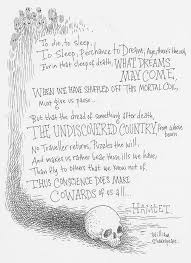 To die, to sleep,
To Sleep, Perchance to Dream; Aye, there's the rub,
For in that sleep of death, WHAT DREAMS
MAY COME,
WHEN WE HAVE SHUFFLED OFF THIS MORTAL COIL,
Must give us pause...
But that the dread of something after death,
THE UNDISCOVERED COUNTRY from whose
bourn
No Traveller returns, Puzzles the will,
And makes us rather bear those ills we have,
Than fly to others that we know not of.
THUS CONSCIENCE DOES MAKE
COWARDS OF us all...
HAMLET.
William
Shakespeare.